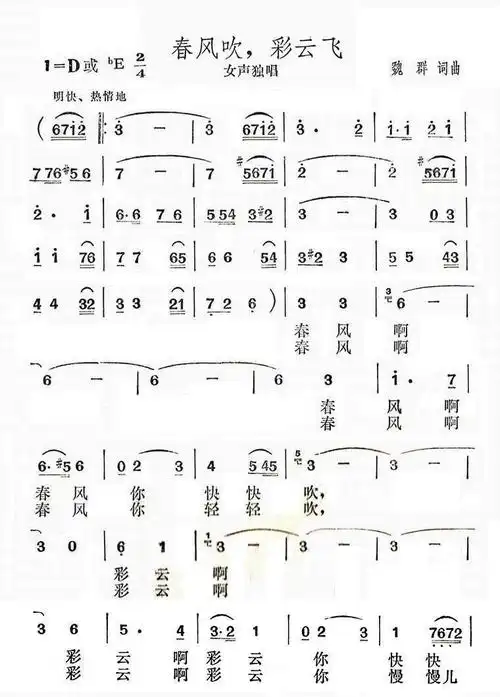 春风吹，彩云飞
1=D或 ᵇE 2/4
女声独唱
魏 群 词曲
明快、热情地
( 6712 ‖: 3 - | 3 6712 | 3 · 2 | 1·1 21 |
776 #56 | 7 - | 7 #5671 | 2 - | 2 5671 |
2 · 1 | 6·6 76 | 554 3#2 | 3 3 | 3 03 |
11 76 | 77 65 | 66 54 | 3#2 3 | 55 43 |
44 32 | 33 21 | 7·2 6 ) | 3 3 | 6 - |
春 风 啊
春 风 啊
6 - | 6 - | 6 3 | 1 · 7 |
春 风 啊
春 风 啊
6·#56 | 02 3 | 4 545 | 3 - | 3 - |
春 风 你 快 快 吹，
春 风 你 轻 轻 吹，
3 0 | 6 1 | 3 - | 3 - | 3 - |
彩 云 啊
彩 云 啊
3 6 | 5 · 4 | 3·2 1 | 3 0 3 | 1 7672 |
彩 云 啊 彩 云 你 快 快
彩 云 啊 彩 云 你 慢 慢儿